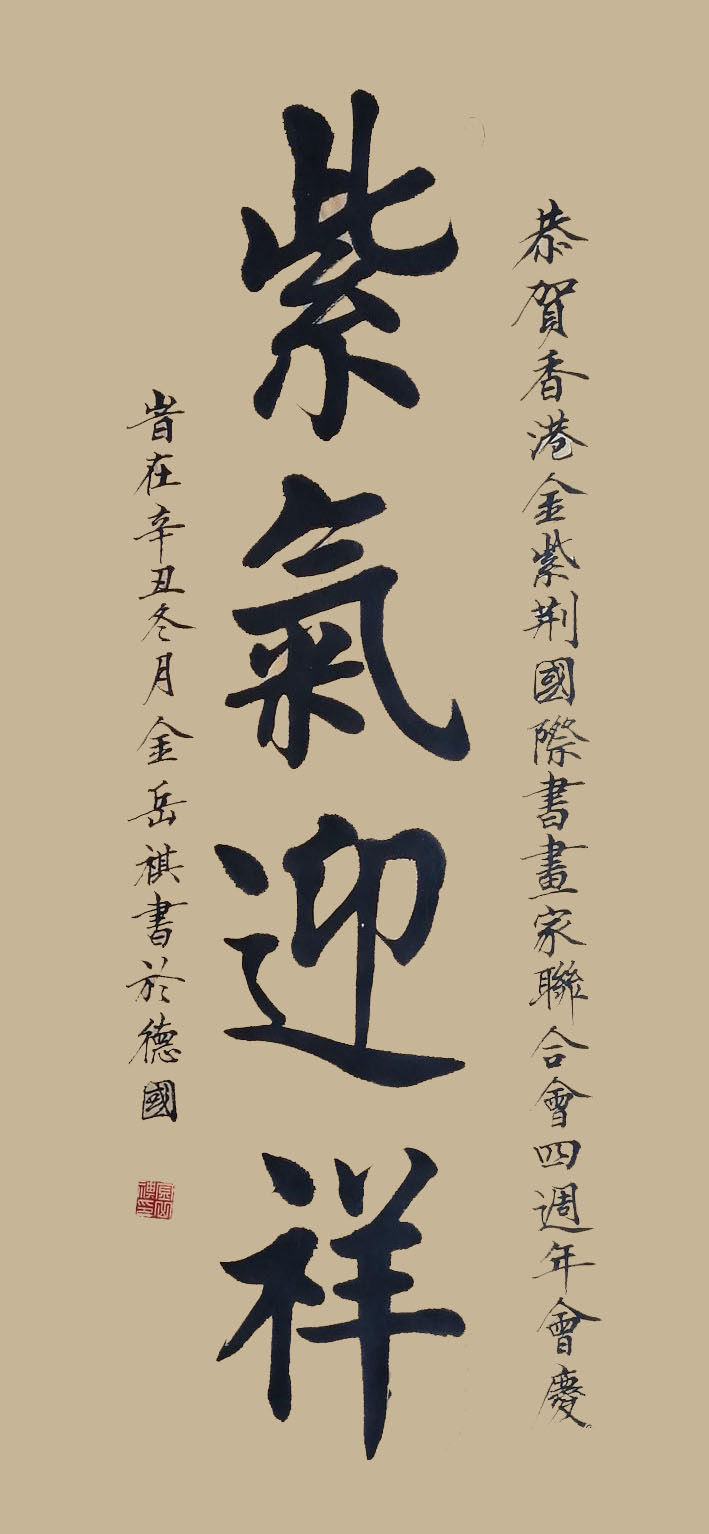 恭賀香港金紫荆國際書畫家聯合會四週年會慶
紫氣迎祥
旹在辛丑冬月金岳祺書於德國